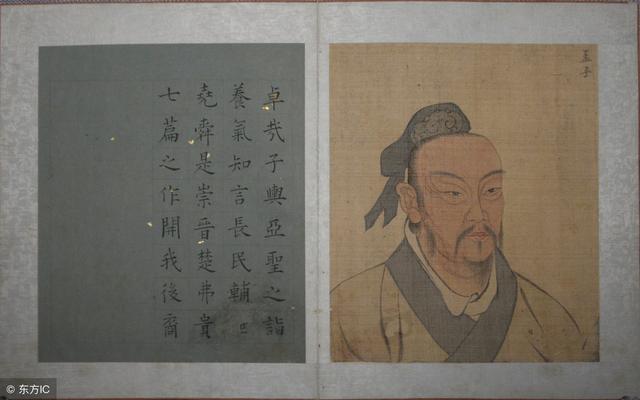 孟子
卓哉子輿亞聖之詣
養氣知言長民輔
堯舜是崇晉楚弗貴
七篇之作開我後裔
© 东方IC